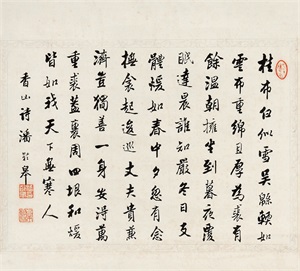 桂布白似雪吳緜輭如
雲布重綿且厚為裘有
餘溫朝擁坐到暮夜覆
眠達晨誰知嚴冬日支
體煖如春中夕忽有念
撫衾起逡巡丈夫貴兼
濟豈獨善一身安得萬
重裘蓋裹周四垠和煖
皆如我天下無寒人
香山詩 潘齡皋